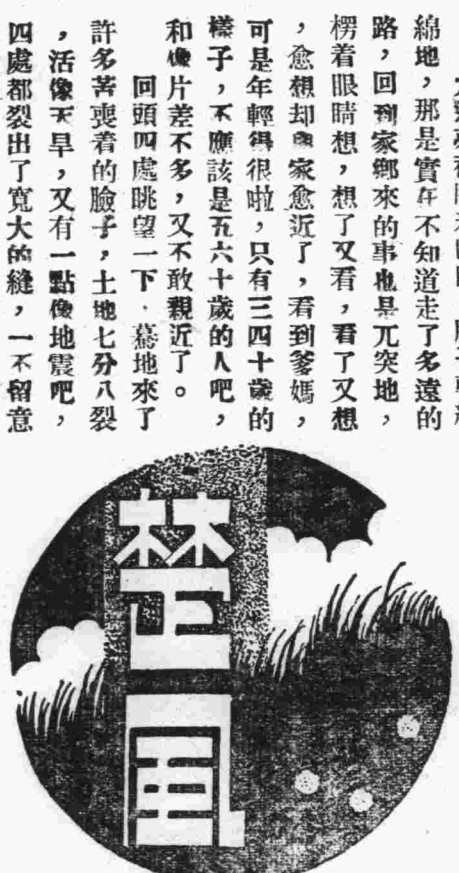 綿地，那是實在不知道走了多遠的
路，回到家鄉來的事也是兀突地，
楞着眼睛想，想了又看，看了又想
，愈想却與家愈近了，看到爹媽，
可是年輕得很啦，只有三四十歲的
樣子，不應該是五六十歲的人吧，
和像片差不多，又不敢親近了。
回頭四處眺望一下．驀地來了
許多苦喪着的臉子，土地七分八裂
，活像天旱，又有一點像地震吧，
四處都裂出了寬大的縫，一不留意
楚風